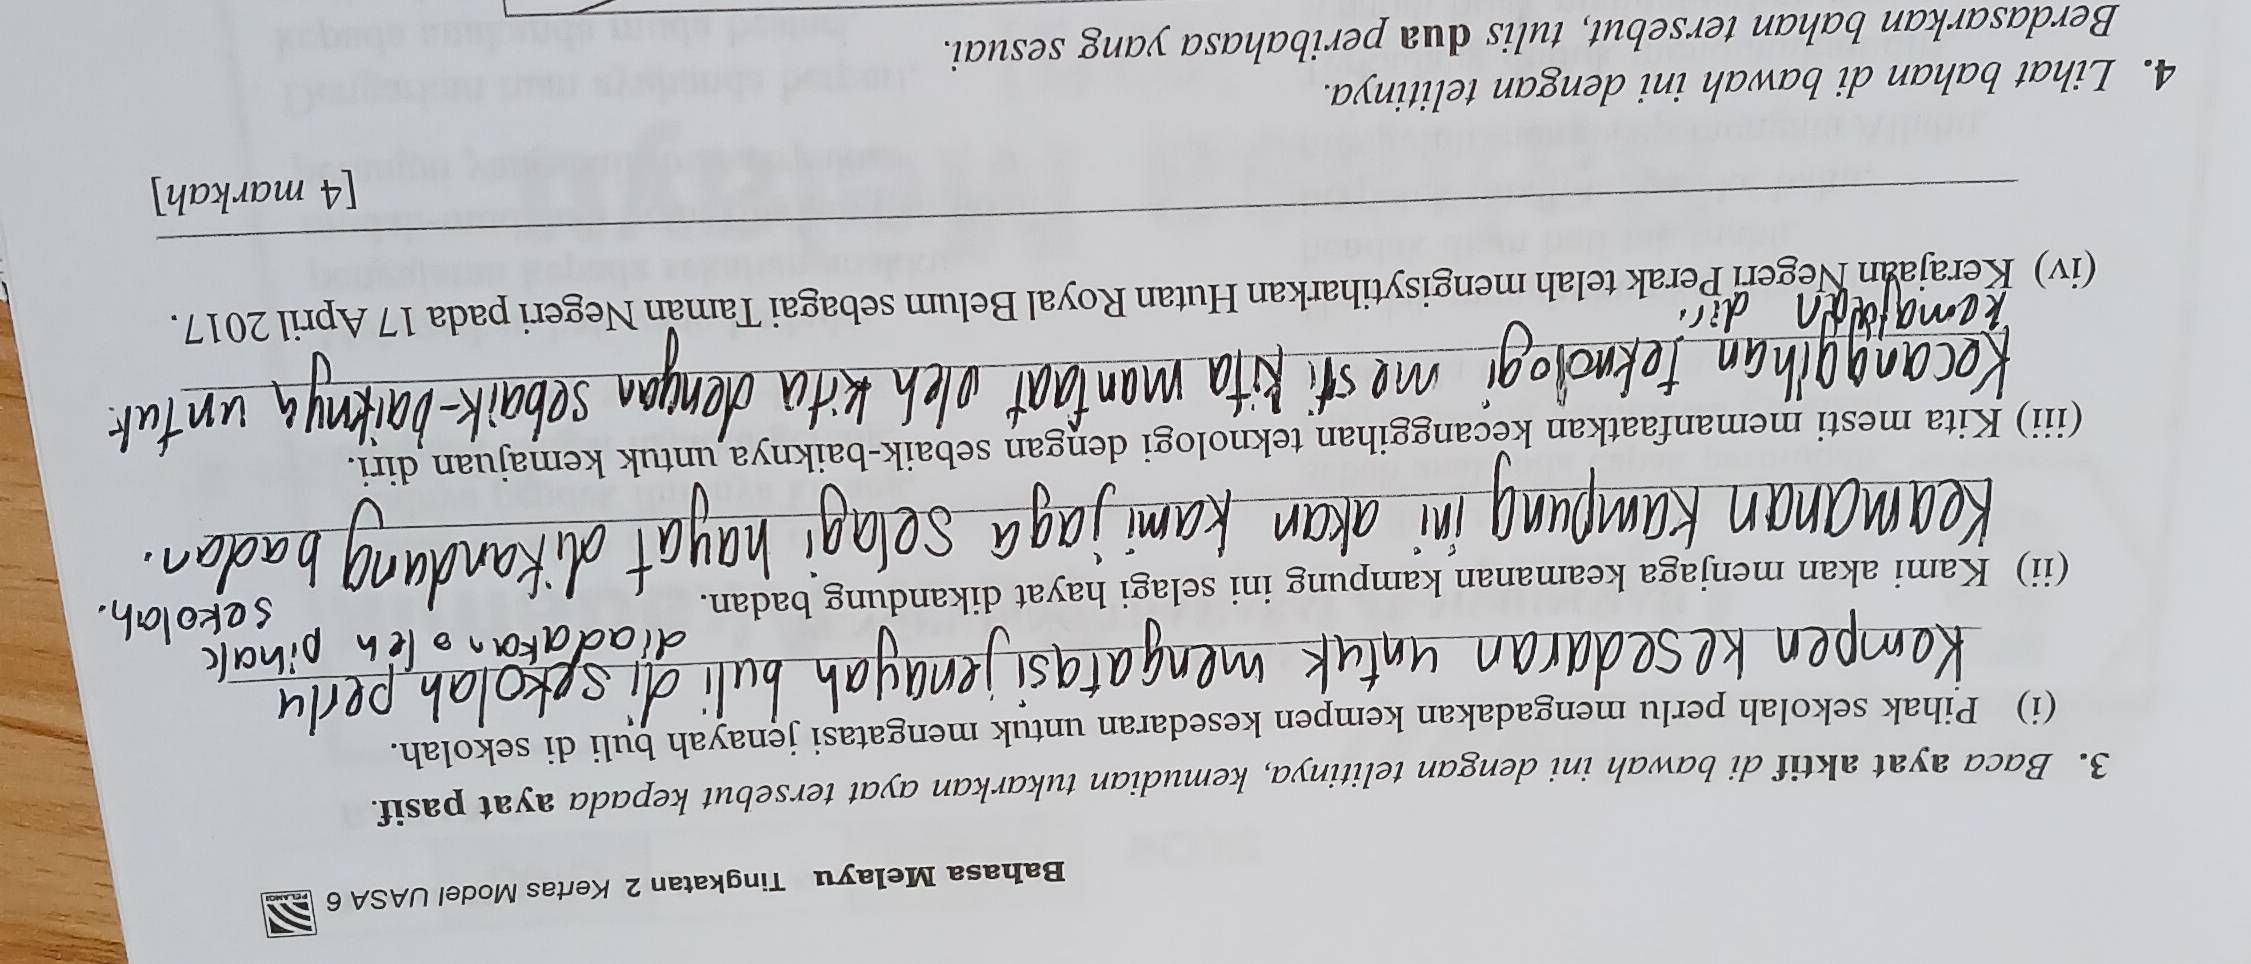 Bahasa Melayu Tingkatan 2 Kertas Model UASA 6
PELANGI
3. Baca ayat aktif di bawah ini dengan telitinya, kemudian tukarkan ayat tersebut kepada ayat pasif.
(i) Pihak sekolah perlu mengadakan kempen kesedaran untuk mengatasi jenayah buli di sekolah.
Kempen kesedaran untuk mengatasi jenayah buli di sekolah perlu
diadakan oleh pihak
sekolah.
(ii) Kami akan menjaga keamanan kampung ini selagi hayat dikandung badan.
Keamanan kampung ini akan kami jaga selagi hayat dikandung badan.
(iii) Kita mesti memanfaatkan kecanggihan teknologi dengan sebaik-baiknya untuk kemajuan diri.
Kecanggihan teknologi mesti kita manfaat oleh kita dengan sebaik-baiknya untuk
kemajuan diri.
(iv) Kerajaan Negeri Perak telah mengisytiharkan Hutan Royal Belum sebagai Taman Negeri pada 17 April 2017.
[4 markah]
4. Lihat bahan di bawah ini dengan telitinya.
Berdasarkan bahan tersebut, tulis dua peribahasa yang sesuai.